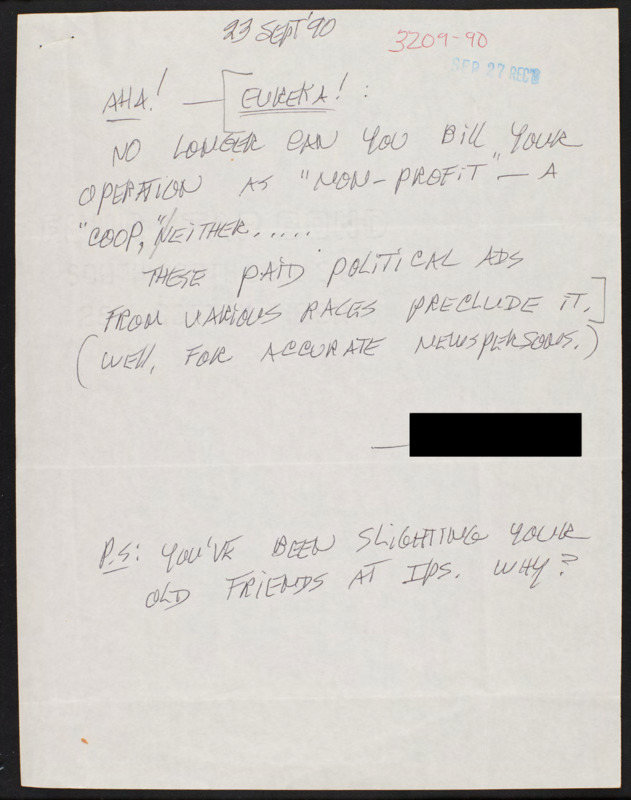 23 SEPT '90
3209-90
SEP 27 REC'D
AHA! — [EUREKA! :
NO LONGER CAN YOU BILL YOUR
OPERATION AS "NON-PROFIT" — A
"COOP," NEITHER.....
THESE PAID POLITICAL ADS
FROM VARIOUS RACES PRECLUDE IT.]
(WELL, FOR ACCURATE NEWSPERSONS.)
—
P.S: YOU'VE BEEN SLIGHTING YOUR
OLD FRIENDS AT IPS. WHY?